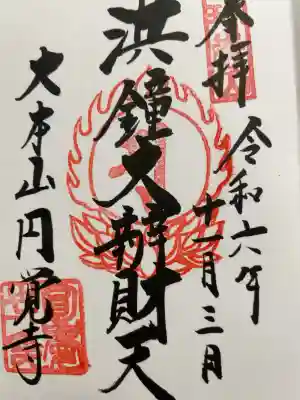 奉拝
令和六年
十一月三日
洪鐘大辨財天
大本山円覚寺